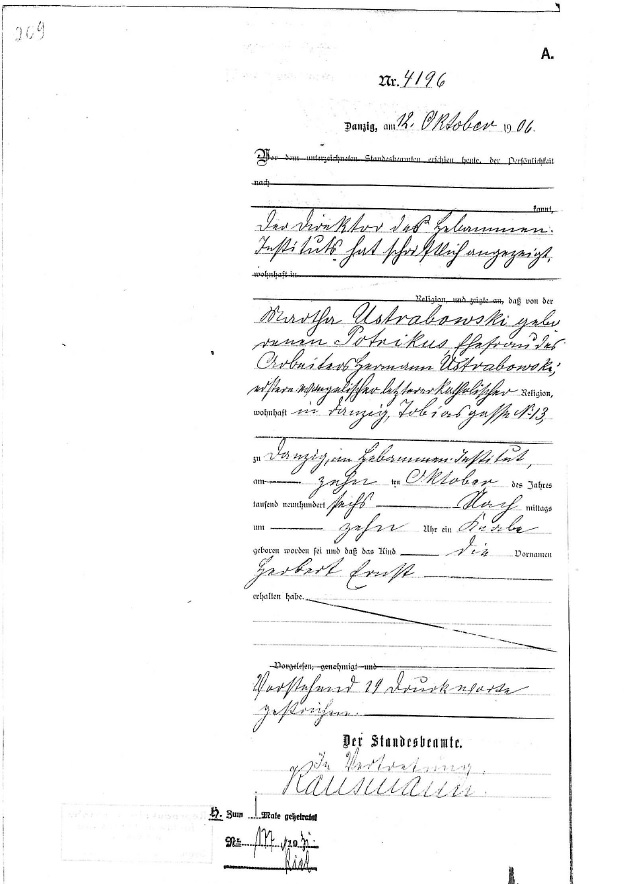 269
A.
Nr. 4196
Danzig, am 12. Oktober 1906.
Vor dem unterzeichneten Standesbeamten erschien heute, der Persönlichkeit
nach
kannt,
Der Direktor des Hebammen-
Instituts hat schriftlich angezeigt,
wohnhaft in
Religion, und zeigte an, daß von der
Martha Ustrabowski gebo
renen Potrikus Ehefrau des
Arbeiters Hermann Ustrabowski,
erstere evangelischer letzterer katholischer Religion,
wohnhaft in Danzig, Tobiasgasse No 13,
zu Danzig, im Hebammen-Institut,
am zehn ten Oktober des Jahres
tausend neunhundert sechs Nach mittags
um zehn Uhr ein Knabe
geboren worden sei und daß das Kind die Vornamen
Herbert Ernst
erhalten habe.
Vorgelesen, genehmigt und
Vorstehend 19 Druckworte
gestrichen.
Der Standesbeamte.
In Vertretung.
H. Zum Male geheiratet
Nr. 177